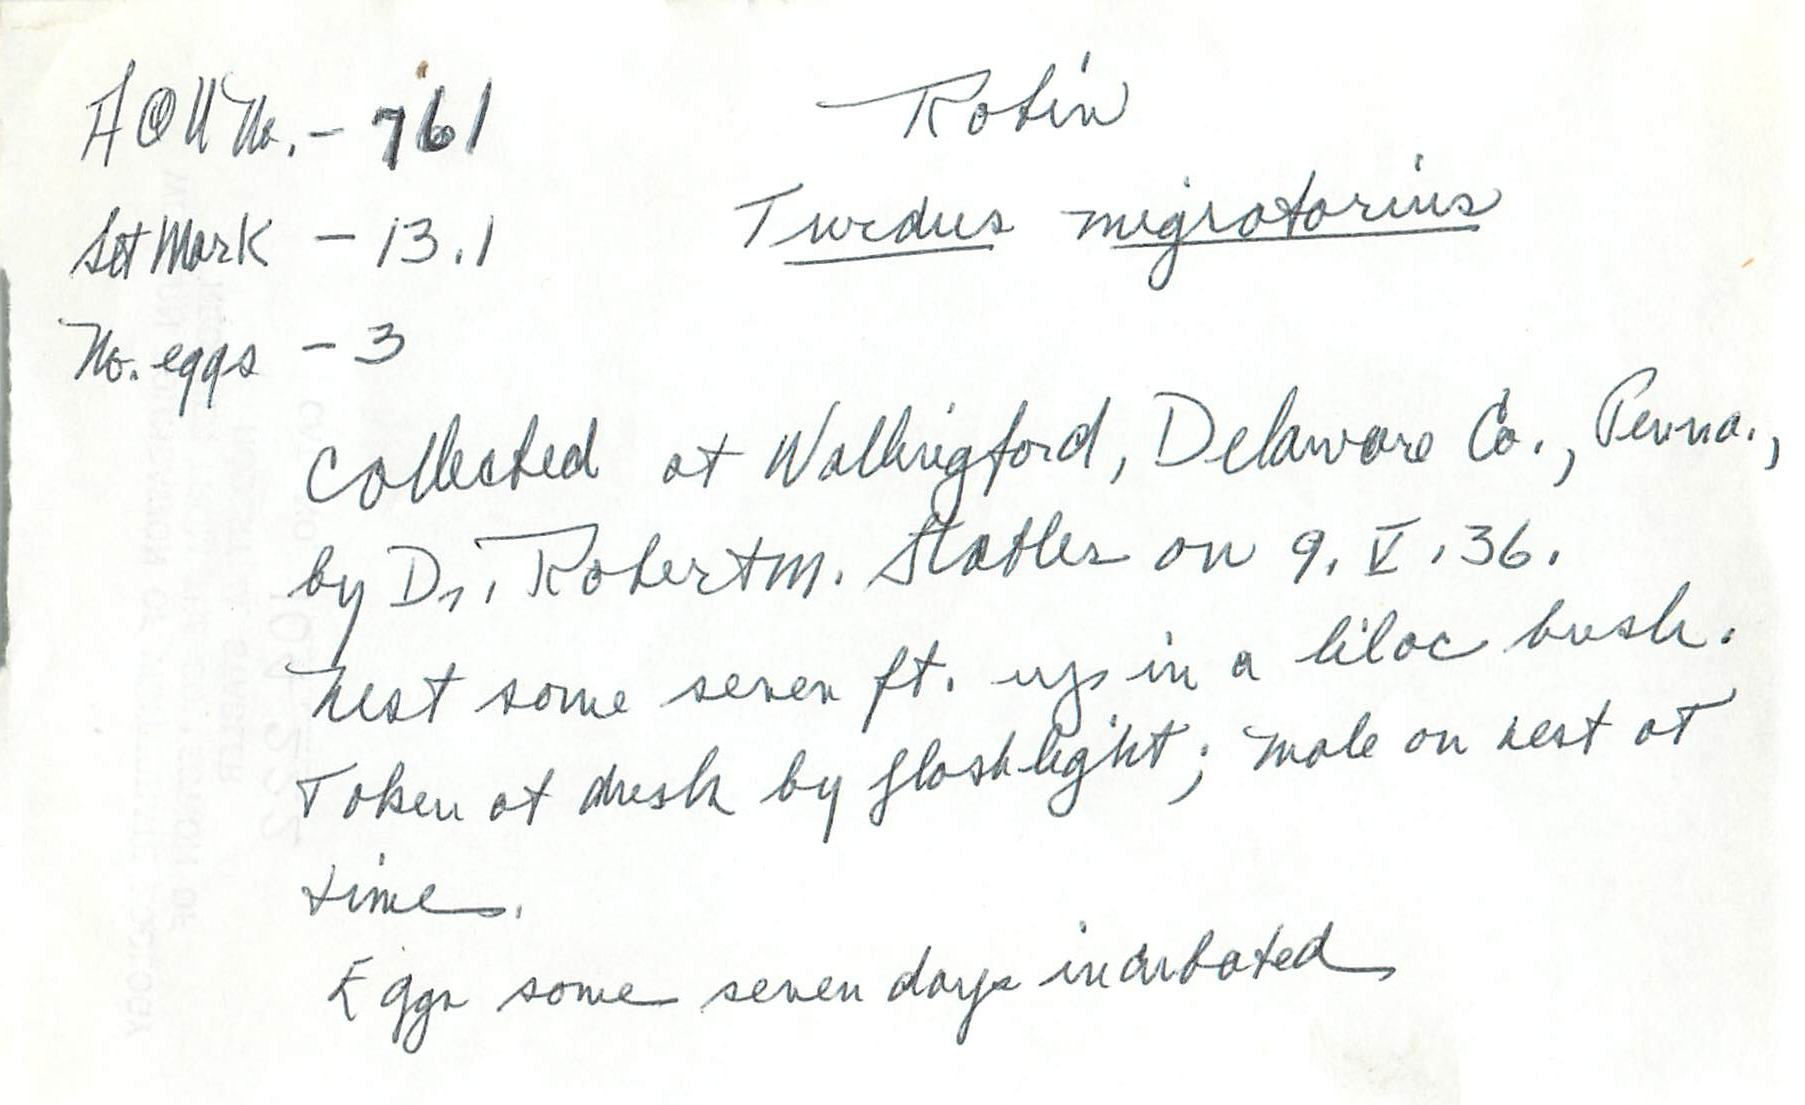 AOU No. - 761
Robin
Set Mark - 13.1
Turdus migratorius
No. eggs - 3
Collected at Wallingford, Delaware Co., Penna.,
by Dr. Robert M. Stabler on 9.V.36.
Nest some seven ft. up in a lilac bush.
Taken at dusk by flashlight; male on nest at
time.
Eggs some seven days incubated